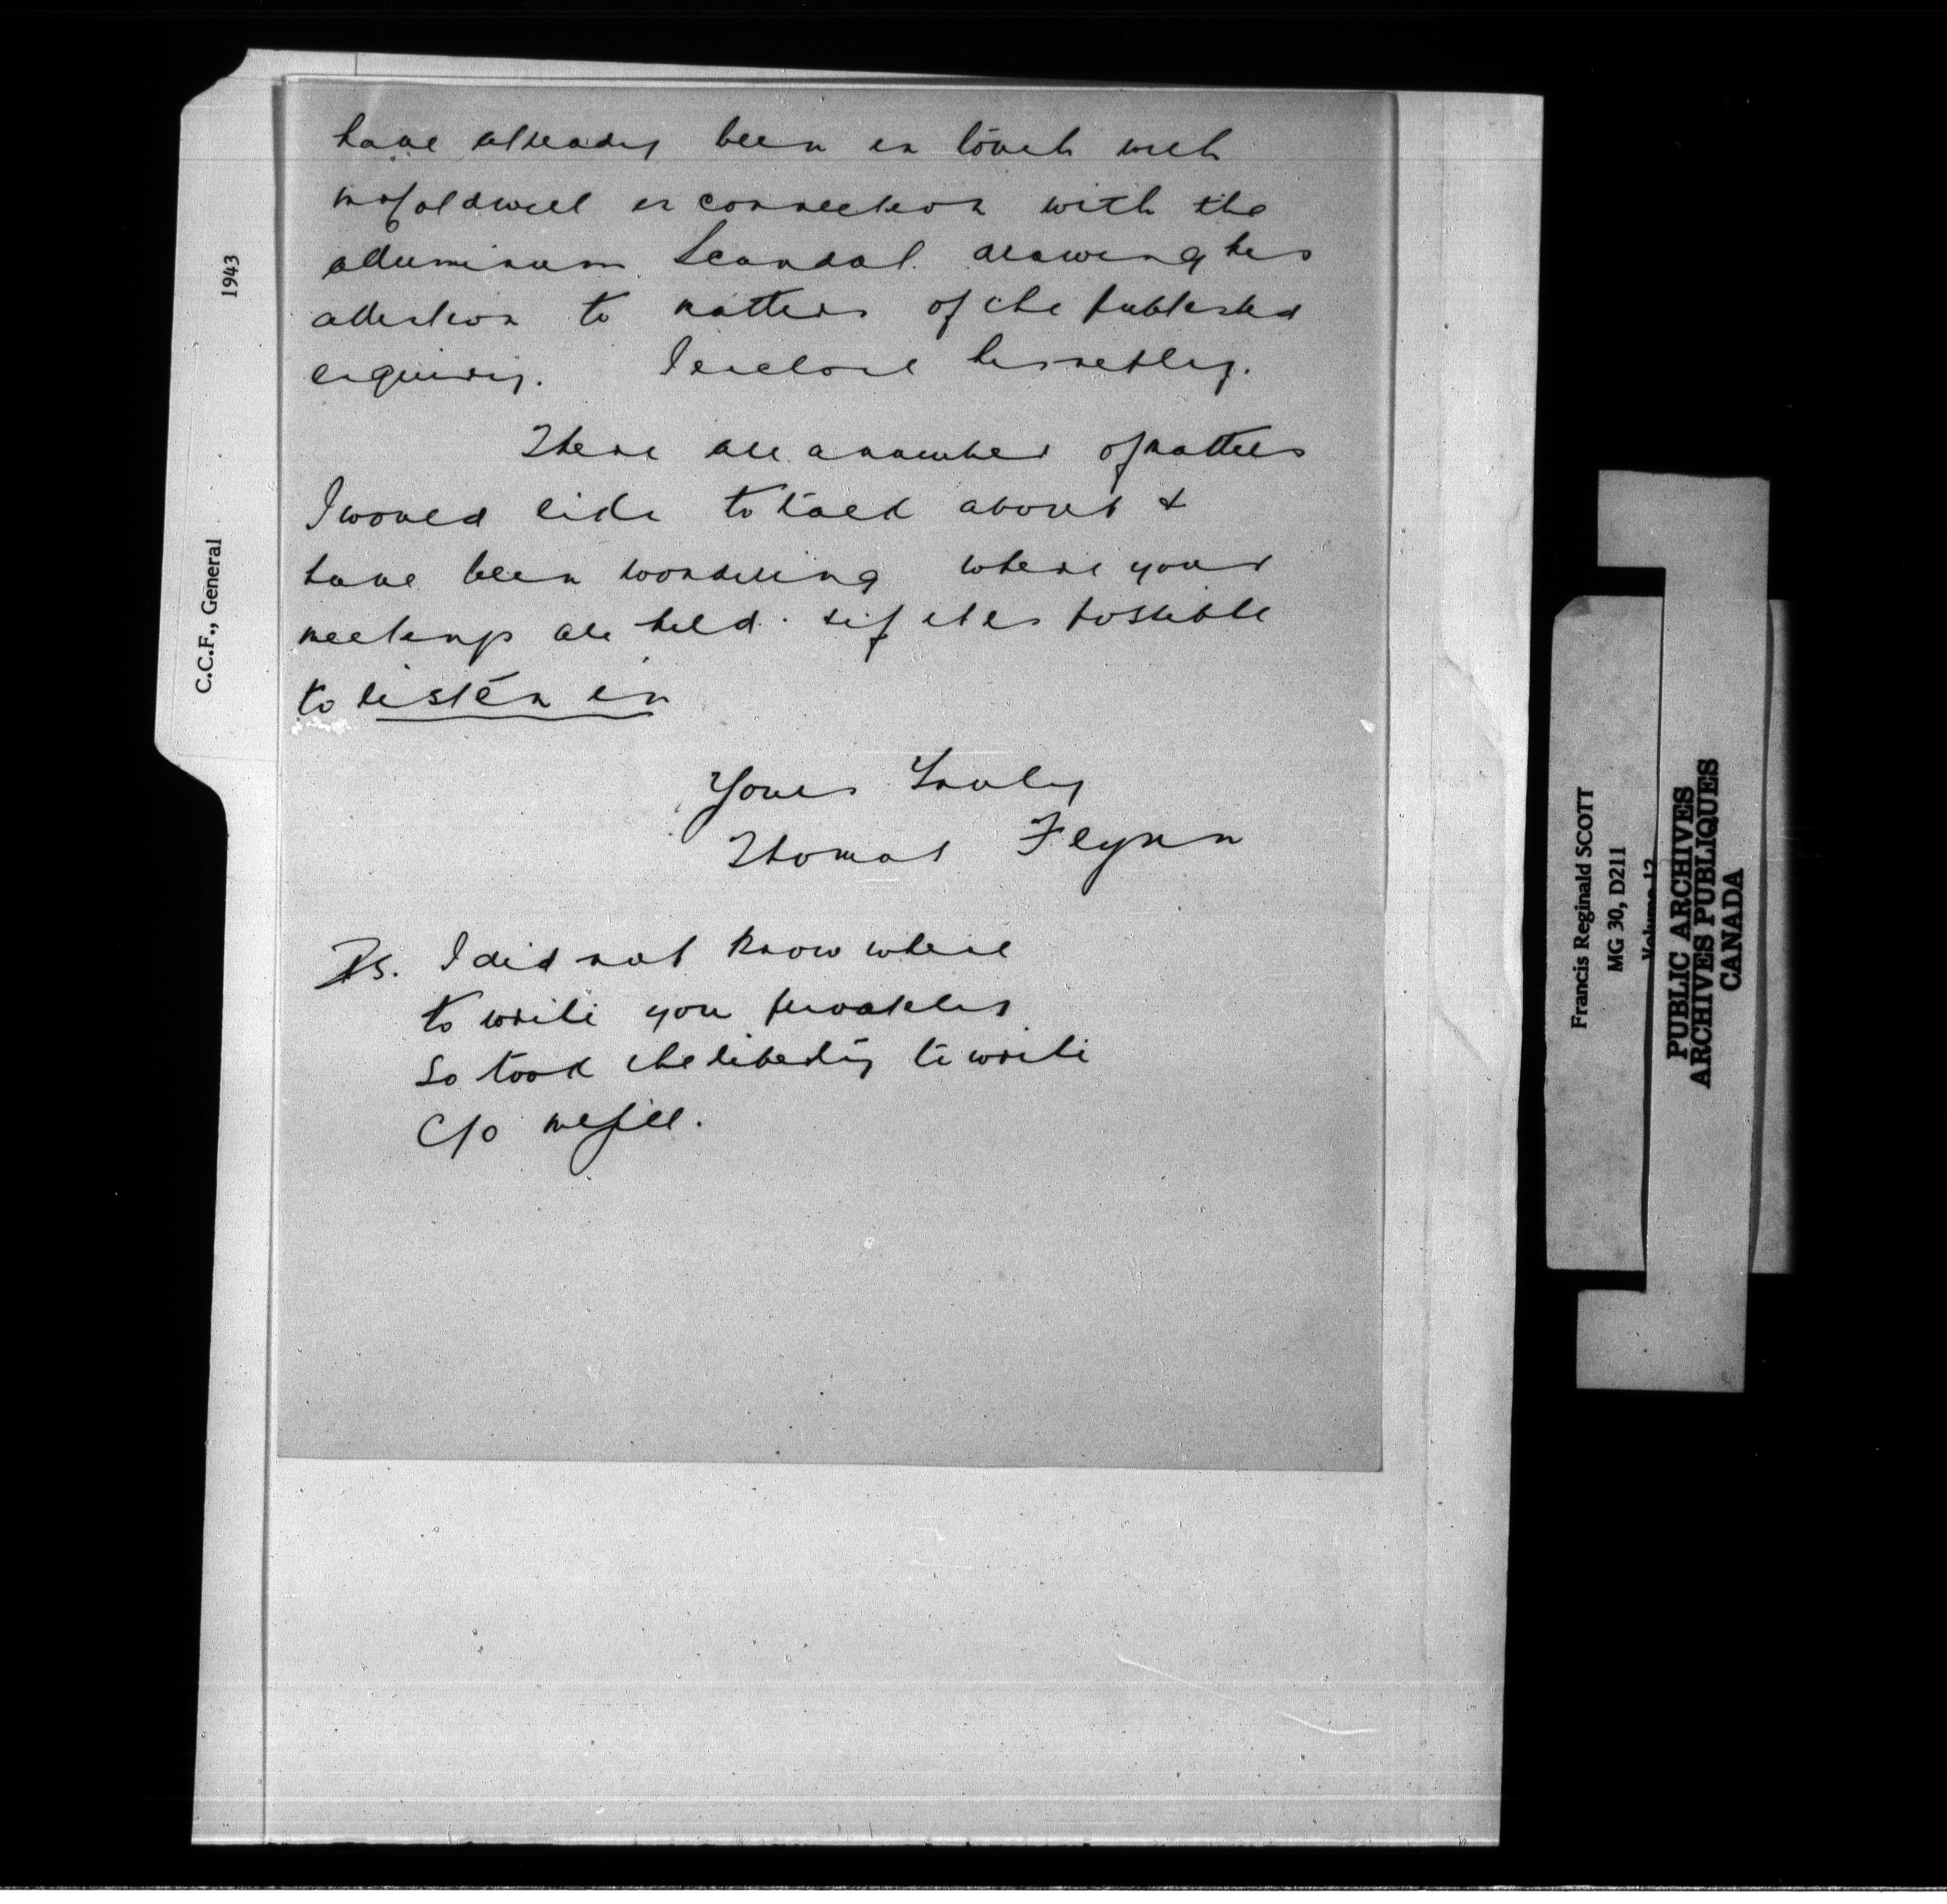 have already been in touch with
Mr Coldwell in connection with the
alluminum Scandal. drawing his
attention to matters of the published
enquiry. I enclose his reply.
There are a number of matters
I would like to talk about &
have been wondering where your
meetings are held. & if it is possible
to listen in
Yours Truly
Thomas Flynn
Ps. I did not know where
to write you
so took the liberty to write
C/o McGill.
1943
C.C.F., General
Francis Reginald SCOTT
MG 30, D211
Volume 12
PUBLIC ARCHIVES
ARCHIVES PUBLIQUES
CANADA